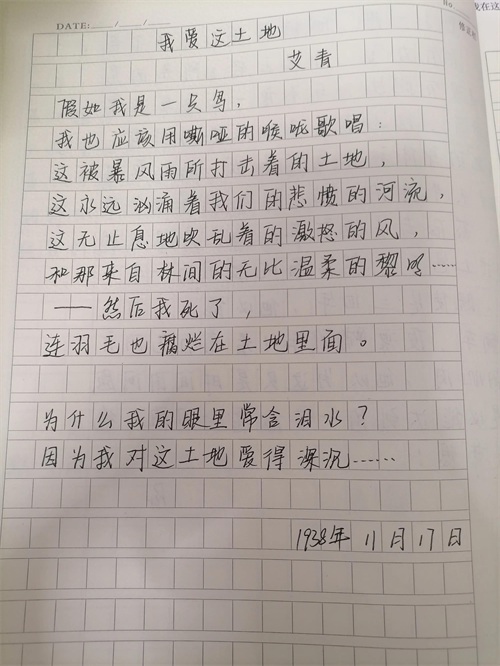 No
DATE: / /
我爱这土地
艾青
假如我是一只鸟,
我也应该用嘶哑的喉咙歌唱:
这被暴风雨所打击着的土地,
这永远汹涌着我们的悲愤的河流,
这无止息地吹乱着的激怒的风,
和那来自林间的无比温柔的黎明……
——然后我死了,
连羽毛也腐烂在土地里面。
为什么我的眼里常含泪水?
因为我对这土地爱得深沉……
1938年 11月17日